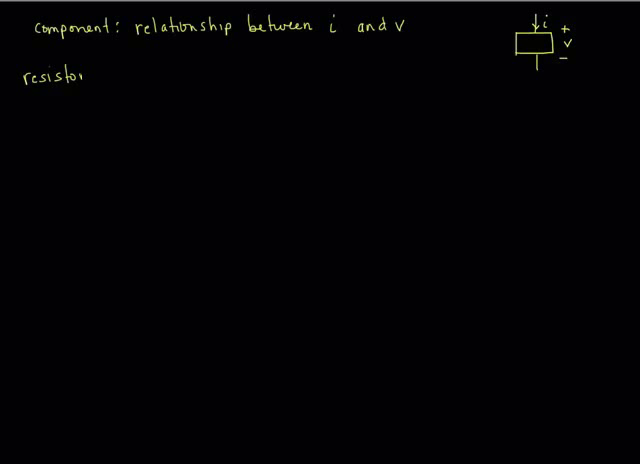 component: relationship between i and v
i
+
v
-
resistor